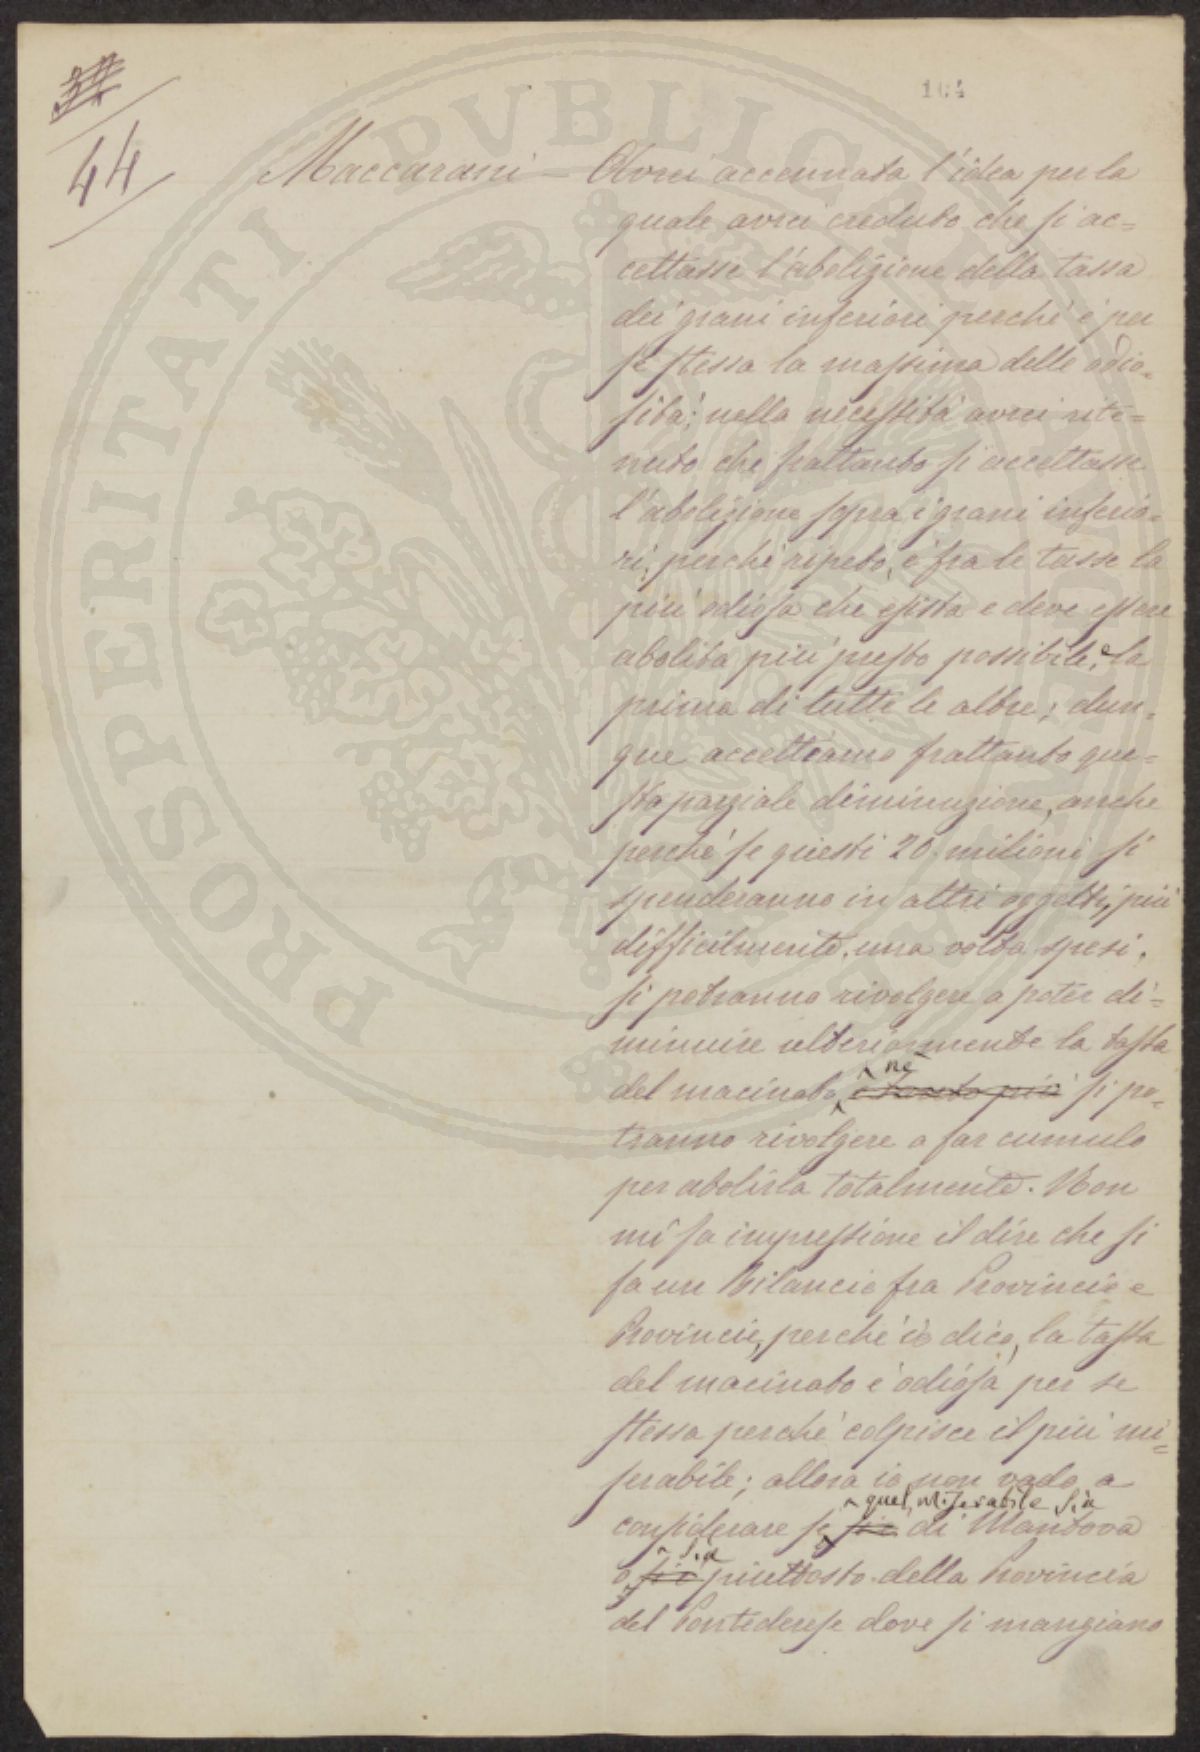 104
44
Maccarani — Avrei accennata l'idea per la
quale avrei creduto che si ac=
cettasse l'abolizione della tassa
dei grani inferiori perché é per
se stessa la massima delle odio=
sità; nella necessità avrei rite=
nuto che frattanto si accettasse
l'abolizione sopra i grani inferio=
ri, perché ripeto, é fra le tasse la
piú odiosa che esista e deve essere
abolita piú presto possibile, e la
prima di tutte le altre; dun=
que accettiamo frattanto que=
sta parziale diminuzione, anche
perché se questi 20 milioni si
spenderanno in altri oggetti, piú
difficilmente, una volta spesi,
si potranno rivolgere a poter di=
minuire ulteriormente la tassa
né
del macinato, e tanto piú si po=
tranno rivolgere a far cumulo
per abolirla totalmente. Non
mi fa impressione il dire che si
fa un Bilancio fra Provincie e
Provincie, perché io dico, la tassa
del macinato é odiosa per se
stessa perché colpisce il piú mi=
serabile; allora io non vado a
quel miserabile sia
considerare se sia di Mantova
sia
o sia piuttosto della Provincia
del Pontederese dove si mangiano
PROSPERITATI PVBLICAE